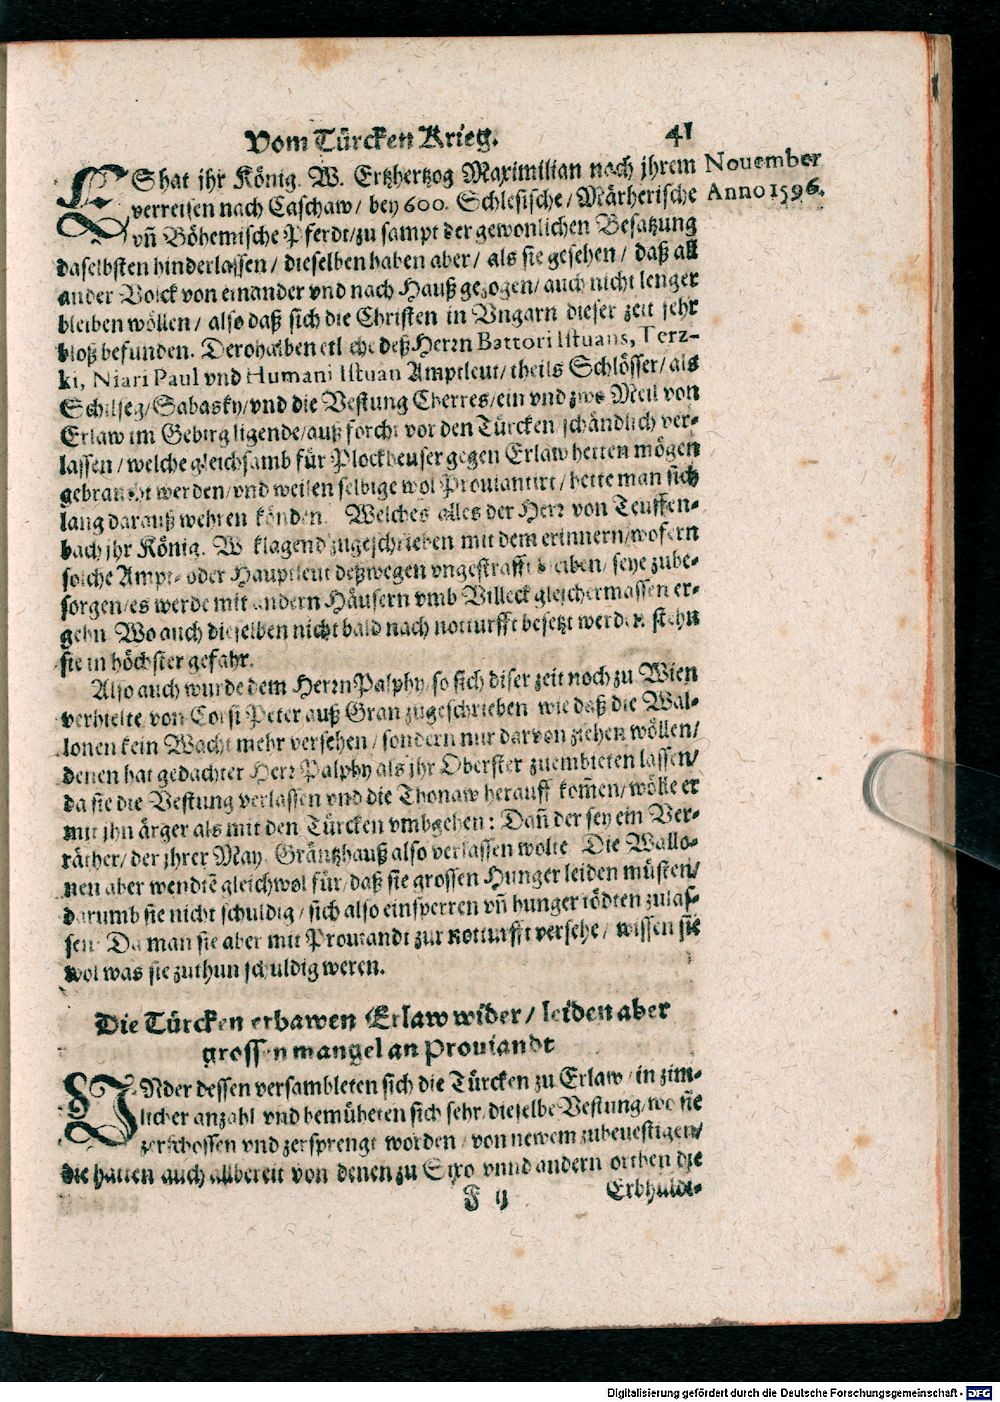 Vom Türcken Krieg. 41
ES hat ihr König. W. Ertzhertzog Maximilian nach jhrem
Nouember
verreisen nach Caschaw/ bey 600. Schlesische/ Märherische
Anno 1596.
vñ Böhemische Pferdt/ zu sampt der gewonlichen Besatzung
daselbsten hinderlassen/ dieselben haben aber/ als sie gesehen/ daß all
ander Volck von einander vnd nach Hauß gezogen/ auch nicht lenger
bleiben wöllen/ also daß sich die Christen in Vngarn dieser zeit sehr
bloß befunden. Derohalben etliche deß Herrn Battori Istuans, Terz-
ki, Niari Paul vnd Humani Istuan Amptleut/ theils Schlösser/ als
Schilseg/ Sabasky/ vnd die Vestung Cherres/ ein vnd zwo Meil von
Erlaw im Gebirg ligende/ auß forcht vor den Türcken schändlich ver-
lassen/ welche gleichsamb für Plockheuser gegen Erlaw hetten mögen
gebraucht werden/ vnd weilen selbige wol Prouiantirt/ hette man sich
lang darauß wehren könden. Welches alles der Herr von Teuffen-
bach jhr König. W. klagend zugeschrieben mit dem erinnern/ wofern
solche Ampt- oder Hauptleut deßwegen vngestrafft bleiben/ seye zube-
sorgen/ es werde mit andern Häusern vmb Villeck gleichermassen er-
gehn. Wo auch dieselben nicht bald nach notturfft besetzt werden/ stehn
sie in höchster gefahr.
Also auch wurde dem Herrn Palphy/ so sich diser zeit noch zu Wien
verhielte/ von Corsi Peter auß Gran zugeschrieben/ wie daß die Wal-
lonen kein Wacht mehr versehen/ sondern nur darvon ziehen wöllen/
denen hat gedachter Herr Palphy als jhr Oberster zuembieten lassen/
da sie die Vestung verlassen vnd die Thonaw herauff kom̃en/ wölle er
mit jhn ärger als mit den Türcken vmbgehen: Dañ der sey ein Ver-
räther/ der jhrer May. Gräntzhauß also verlassen wolte. Die Wallo-
nen aber wendtẽ gleichwol für/ daß sie grossen Hunger leiden müsten/
darumb sie nicht schuldig/ sich also einsperren vñ hunger tödten zulas-
sen. Da man sie aber mit Prouiandt zur notturfft versehe/ wissen sie
wol was sie zuthun schuldig weren.
Die Türcken erbawen Erlaw wider/ leiden aber
grossen mangel an Prouiandt
UNder dessen versambleten sich die Türcken zu Erlaw/ in zim-
licher anzahl vnd bemüheten sich sehr/ dieselbe Vestung/ wo sie
zerschossen vnd zersprengt worden/ von newem zubeuestigen/
die hatten auch allbereit von denen zu Sixo vnnd andern orthen die
F ij Erbhuldi-
Digitalisierung gefördert durch die Deutsche Forschungsgemeinschaft - DFG